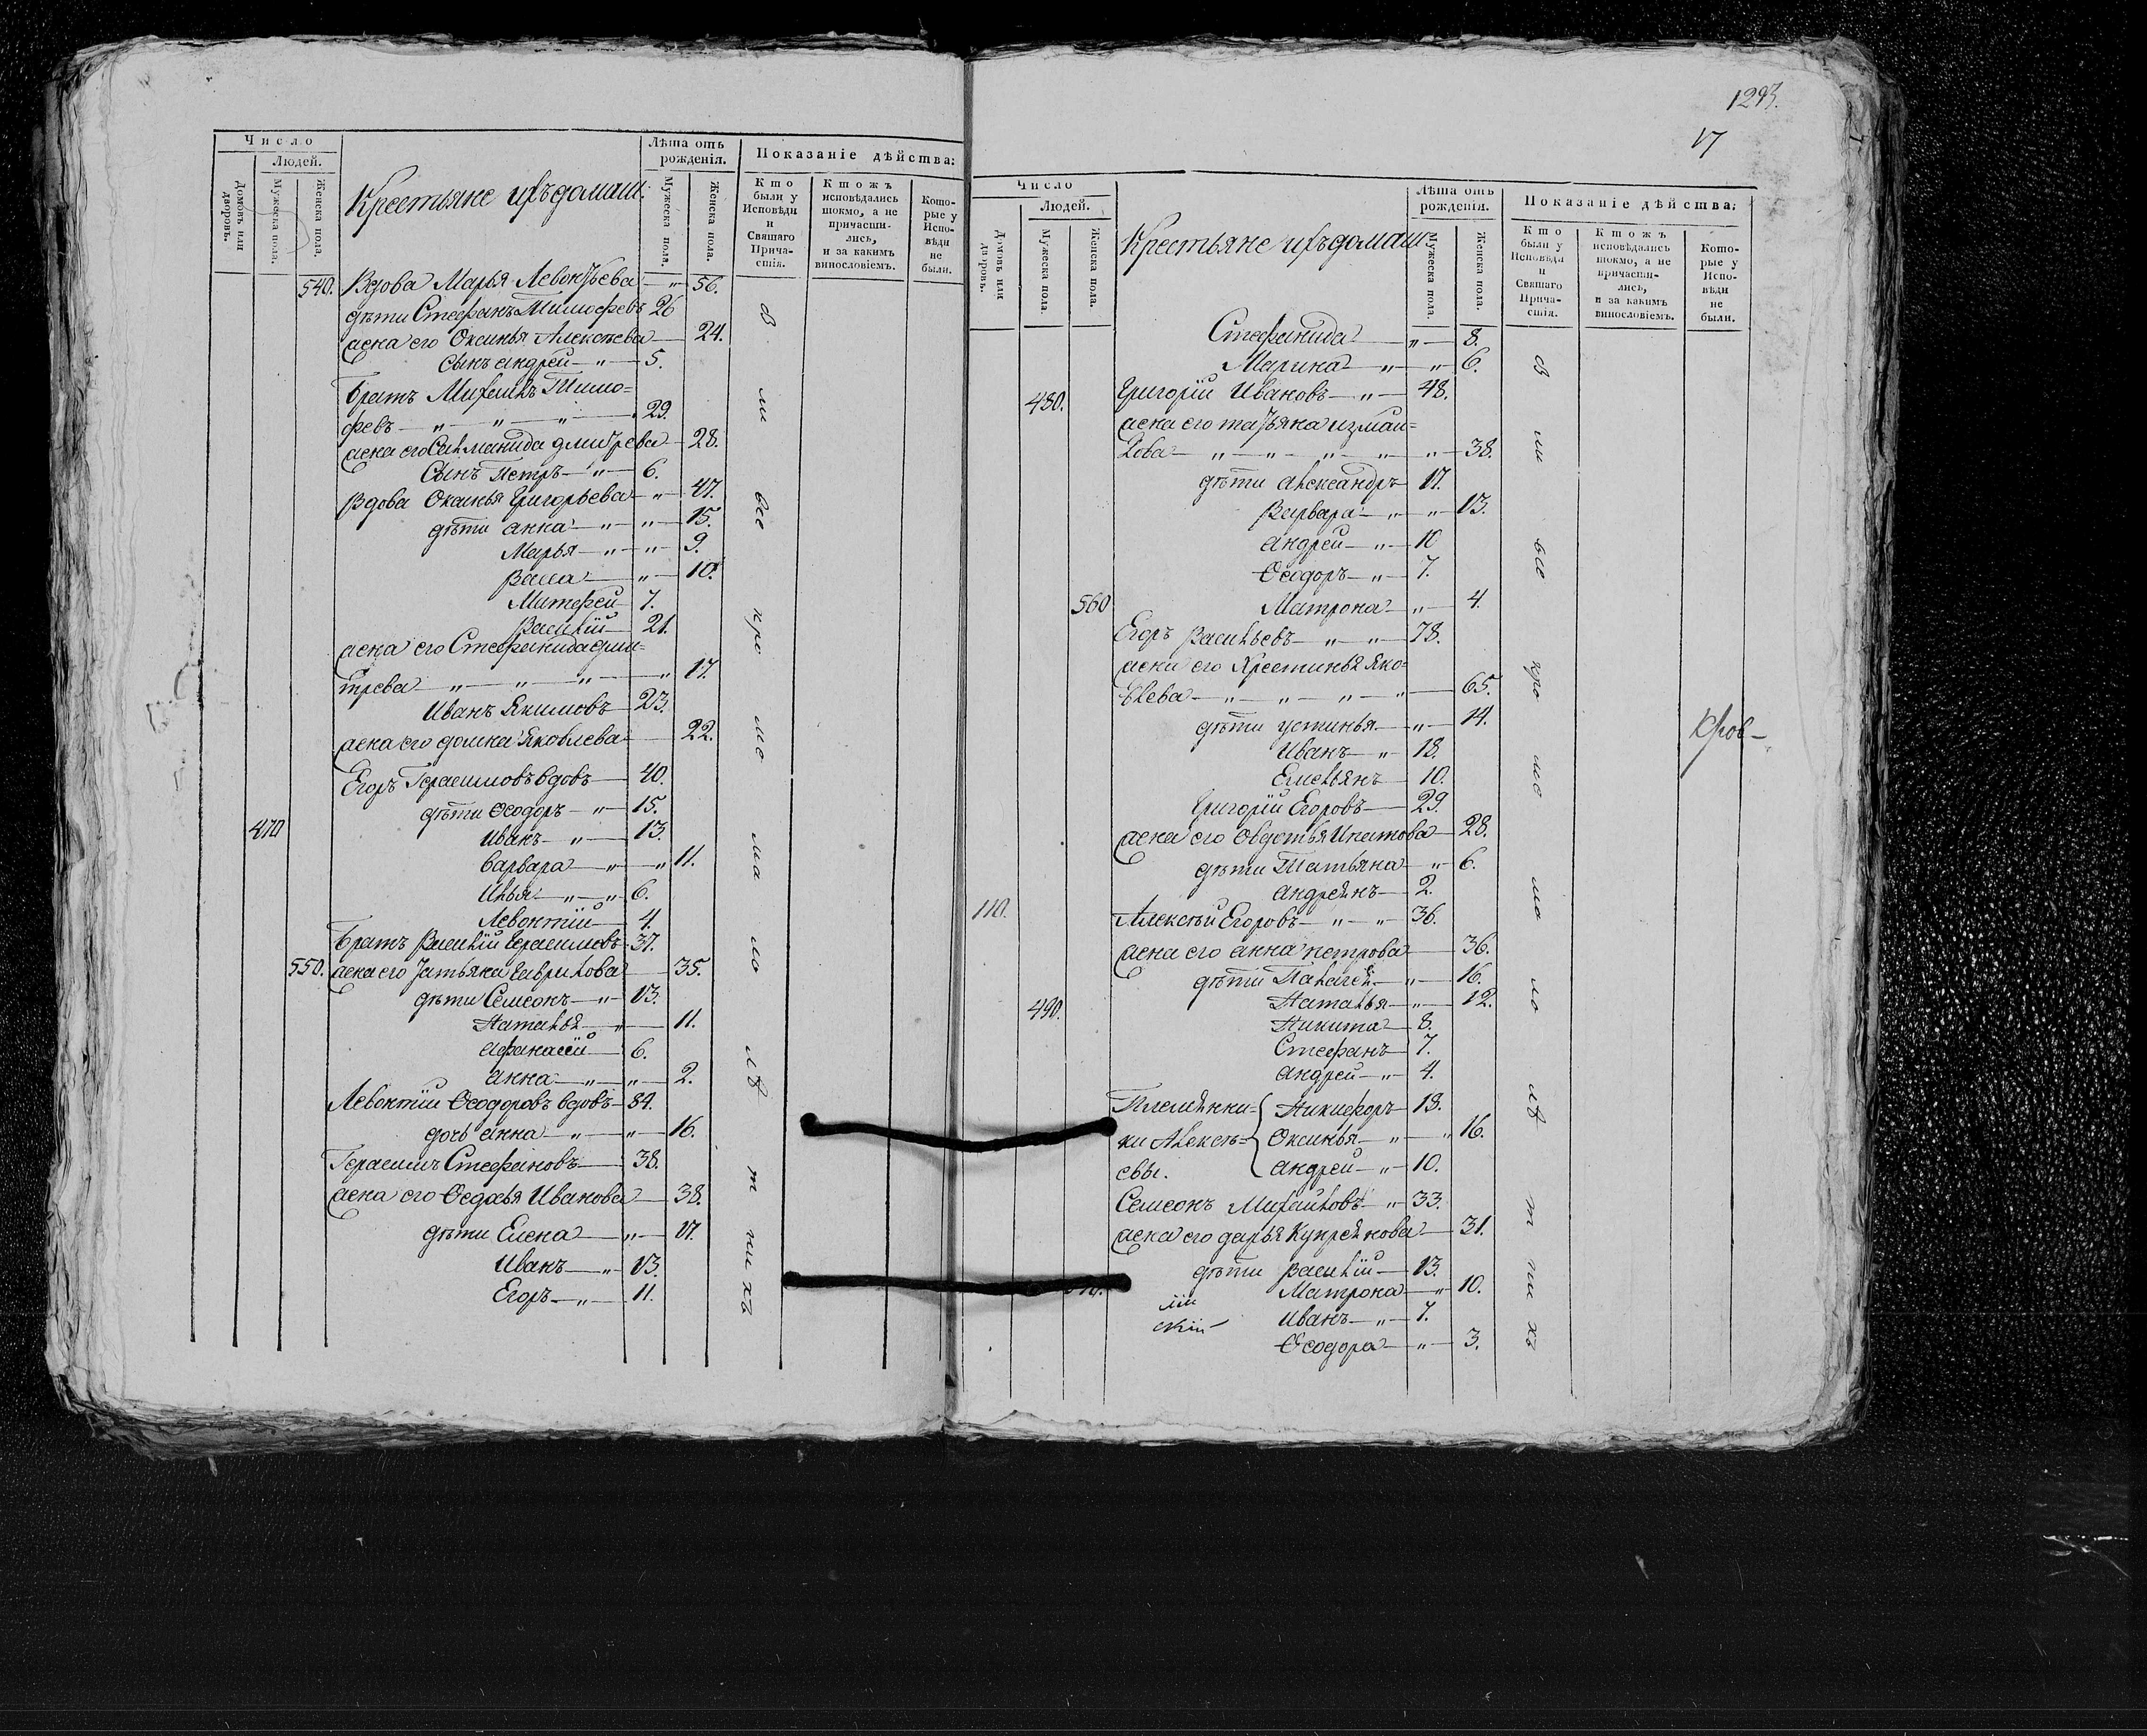 1293.
17
Число
Людей.
Домовъ или дворовъ.
Мужеска пола.
Женска пола.
Крестьяне ихъ домаш:
Лѣта отъ рожденія.
Мужеска пола.
Женска пола.
Показаніе дѣйства:
Кто были у Исповѣди и Святаго Причастія.
Ктожъ исповѣдались токмо, а не причастились, и за какимъ винословіемъ.
Которые у Исповѣди не были.
540. Вдова Марья Левонтьева — „ — 56.
дѣти Стефанъ Тимофеевъ 26
жена его Оксинья Алексѣева — 24.
Сынъ андрей — „ — 5.
Братъ Михаилъ Тимо=
феевъ — „ — „ — „ — 29.
жена его дмитрева — 28.
Сынъ Петръ — „ — 6.
Вдова Оксинья Григорьева — „ — 47.
дѣти анна — „ — „ — 15.
Марья — „ — „ — 9.
Васса — „ — 10.
Матфей — 7.
Василій — 21.
жена его Стефанида дми=
трева — „ — „ — „ — „ 17.
Иванъ Якимовъ — 23.
жена его домна Яковлева — 22.
Егоръ Герасимовъ вдовъ — 40.
дѣти Ѳеодоръ — „ — 15.
470 Иванъ — „ — 13.
варвара — „ — „ 11.
Илья — „ — „ 6.
Левонтій — 4.
Братъ Василій Герасимовъ 37.
550. жена его Татьяна Гаврилова — 35.
дѣти Семеонъ — „ — 13.
Наталья — „ — 11.
Афанасій — 6.
анна — „ — „ — 2.
Левонтій Ѳеодоровъ вдовъ — 84.
дочь анна — „ — „ — 16.
Герасимъ Стефановъ — 38.
жена его Ѳедосья Иванова — 38.
дѣти Елена — „ — 17.
Иванъ — „ — 13.
Егоръ — „ — 11.
Число
Людей.
Домовъ или дворовъ.
Мужеска пола.
Женска пола.
Крестьяне ихъ домаш:
Лѣта отъ рожденія.
Мужеска пола.
Женска пола.
Показаніе дѣйства:
Кто были у Исповѣди и Святаго Причастія.
Ктожъ исповѣдались токмо, а не причастились, и за какимъ винословіемъ.
Которые у Исповѣди не были.
Стефанида — „ — 8.
Марина — „ — „ 6.
480. Григорій Ивановъ — „ — 48.
жена его татьяна измаи=
лова — „ — „ — „ — „ — „ — 38.
дѣти александръ 17.
Варвара — „ — „ — 13.
андрей — „ — 10
Ѳеодоръ — „ — 7.
560 Матрона — „ — 4.
Егоръ Васильевъ — „ — „ — 78.
жена его Хрестинья Яко=
влева — „ — „ — „ — „ — 65.
дѣти устинья — „ — 14.
Иванъ — „ 18.
Емельянъ — 10.
Григорій Егоровъ — 29.
жена его Овдотья Ипатова — 28.
дѣти Татьяна — „ 6.
андреянъ — 2.
110. Алексѣй Егоровъ — „ — „ — 36.
жена его анна петрова — 36.
дѣти Палагея — „ — 16.
490. Наталья — „ — 12.
Никита — 8.
Стефанъ — 7.
андрей — „ — 4.
Племянни= { Никифоръ — 18.
ки Алексѣ= Оксинья — „ — „ 16.
евы. андрей — „ — 10.
Семеонъ Михайловъ — „ 33.
жена его дарья Купреянова — 31.
дѣти Василій — 13.
Матрона — „ 10.
Иванъ — „ — 7.
Ѳеодора — „ — 3.